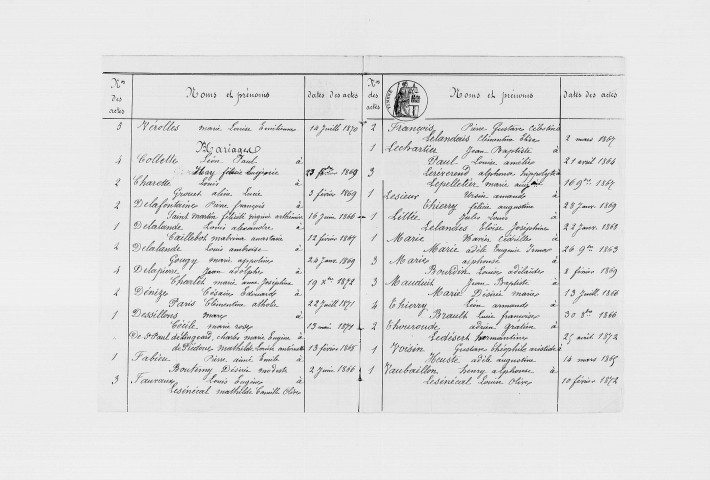 Nos des actes Noms et prénoms dates des actes
3 Vérolles marie Louise Emilienne 14 Juillt 1870
Mariages
4 Collette Léon Paul à
Hay félicie Eugénie 1869
2 Charette Louis à
Grouet aline Lucie 3 février 1869
2 Delafontaine Pierre françois à
Saint martin félicité virginie 16 Juin 1866
1 Delalande Louis alexandre à
Caillebot malvina anastasie 12 février 1867
2 Delalande Louis ambroise à
Gougy marie 24 Janv 1869
4 Delapierre Jean adolphe à
Charles marie anne Joséphine 19 Xbre 1872
2 Dénize Césaire Edouard à
Paris Clémentine 22 Juillt 1871
1 Dessillons marc à
Cécile marie rose 13 mai 1871
De St Paul de Lingeard, charles marie Eugène à
mathilde Louise 13 février 1865
1 Fabien Pierre aimé Emile à
Boutémy Désirée modeste 2 Juin 1866
3 Fauvaux Louis Eugène à
Lesénécal mathilde Camille Olive
Nos des actes Noms et prénoms dates des actes
2 François Pierre Gustave Célestin à
Lelandais Clémentine Elise 2 mars 1867
1 Lechartier Jean Baptiste à
Paul Louise amélie 21 avril 1864
3 Lerévérend alphonse hippolyte à
Lepelletier marie 16 9bre 1867
1 Lesieur Ursin amand à
Thierry félicie augustine 28 Janv 1869
1 Littée Jules Louis à
Lelandes Eloïse Joséphine 22 Janv 1868
1 Marie Xavier à
Marie adèle Eugénie 26 9bre 1863
3 Marie alphonse à
Bourdin Louise adélaïde 8 février 1869
2 Mauduit Jean Baptiste à
Marie Désirée marie 13 Juillt 1866
4 Thierry Léon armand à
Brault Louise françoise 30 8bre 1866
2 Thouroude adrien Gratien à
Ledésert 25 avril 1872
1 Voisin Gustave théophile aristide à
Heuste adèle augustine 14 mars 1865
1 Vaubaillon henry alphonse à
Lesénécal Louise Olive 10 février 1872